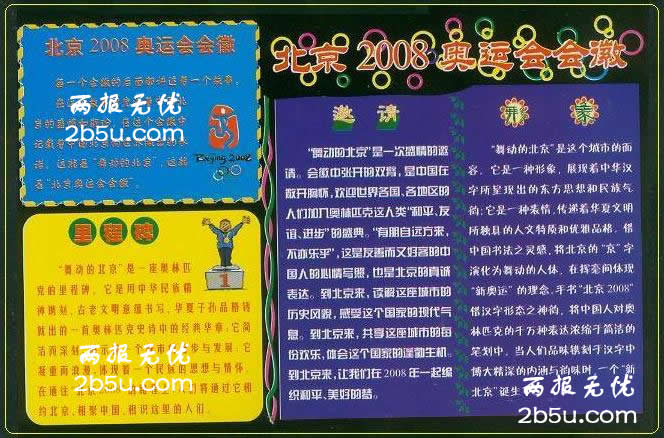 北京 2008 奥运会会徽
每一个会徽的后面都讲述着一个故事。
两报无优
2b5u.com
Beijing 2008
是"北京奥运会会徽。
里程碑
1
"舞动的北京"是一座奥林匹
克的里程碑。它是用中华民族精
神镌刻、古老文明意蕴书写、华夏子孙品格铸
就出的一首奥林匹克史诗中的经典华章；它简
两报无优
2b5u.com
约北京、相聚中国、相识这里的人们。
北京 2008 奥运会会徽
邀请
"舞动的北京"是一次盛情的邀
请。会徽中张开的双臂，是中国在
敞开胸怀，欢迎世界各国、各地区的
人们加入奥林匹克这人类"和平、友
谊、进步"的盛典。"有朋自远方来，
不亦乐乎"，这是友善而又好客的中
国人的心情写照，也是北京的真诚
表达。到北京来，读解这座城市的
历史风貌，感受这个国家的现代气
息。到北京来，共享这座城市的每
份欢乐，体会这个国家的蓬勃生机。
到北京来，让我们在 2008 年一起编
织和平、美好的梦。
形象
"舞动的北京"是这个城市的面
容。它是一种形象，展现着中华汉
字所呈现出的东方思想和民族气
韵；它是一种表情，传递着华夏文明
所独具的人文特质和优雅品格。借
中国书法之灵感，将北京的"京"字
演化为舞动的人体，在挥毫间体现
"新奥运"的理念。手书"北京 2008"
借汉字形态之神韵，将中国人对奥
林匹克的千万种表达浓缩于简洁的
笔划中。当人们品味镌刻于汉字中
博大精深的内涵与韵味时，一个"新
北京"诞生
两报无优
2b5u.com